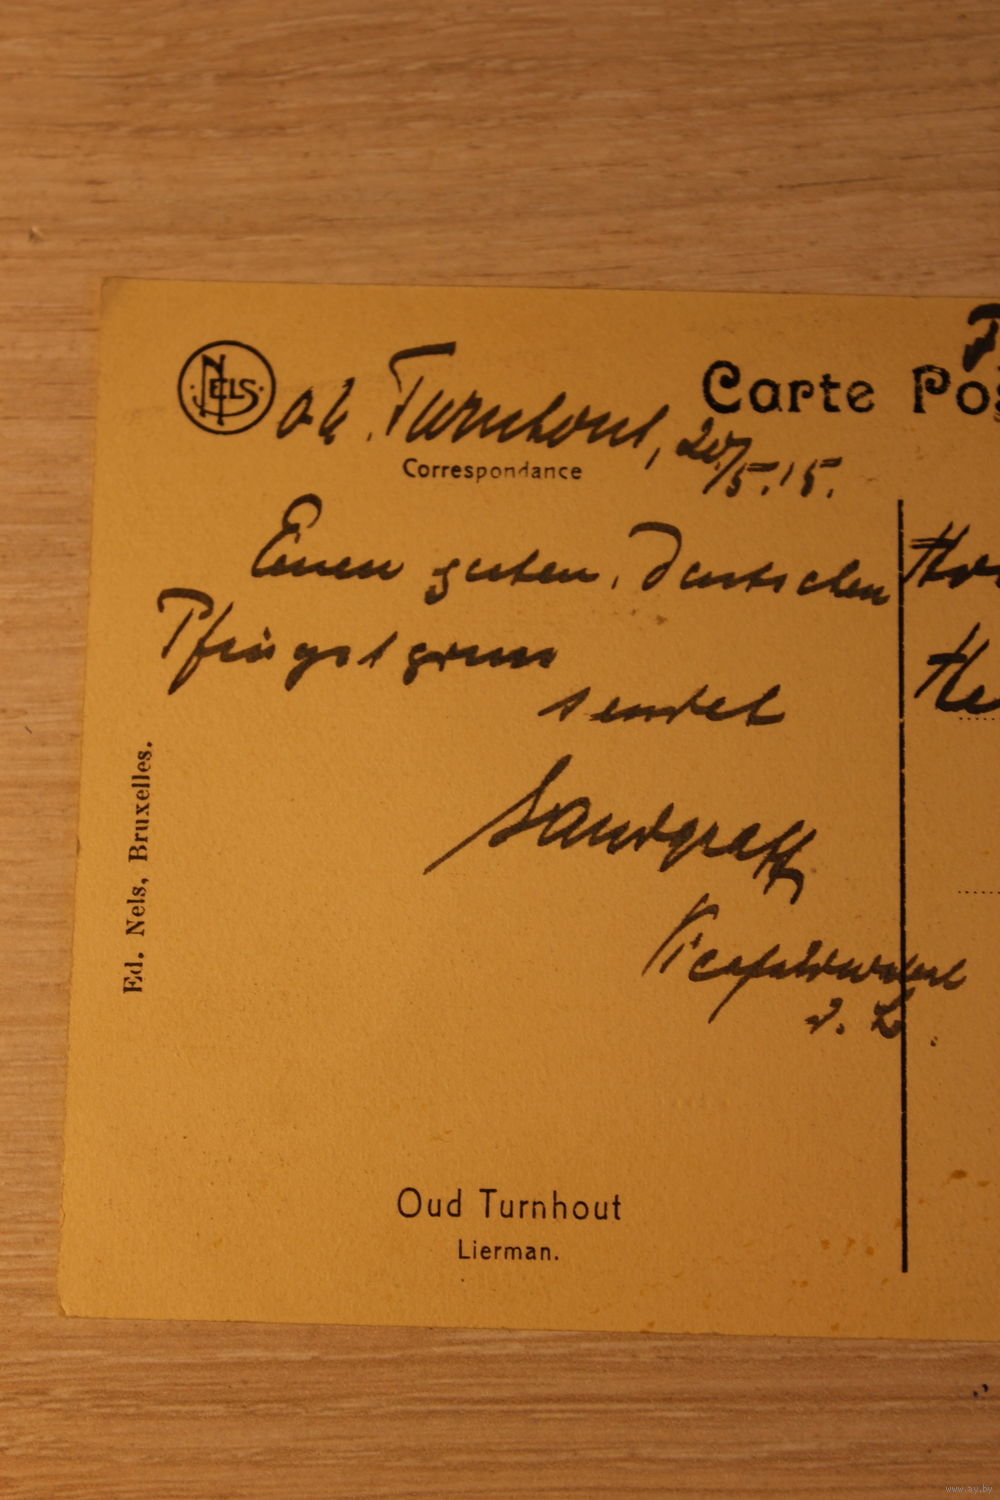 NELS
Carte Pos
Turnhout, 20/5.15.
Correspondance
Einen guten, deutschen
Pfingstgruss
sendet
Landgraff
Vicefeldwebel
d. L.
Ed. Nels, Bruxelles.
Oud Turnhout
Lierman.
www.ay.by